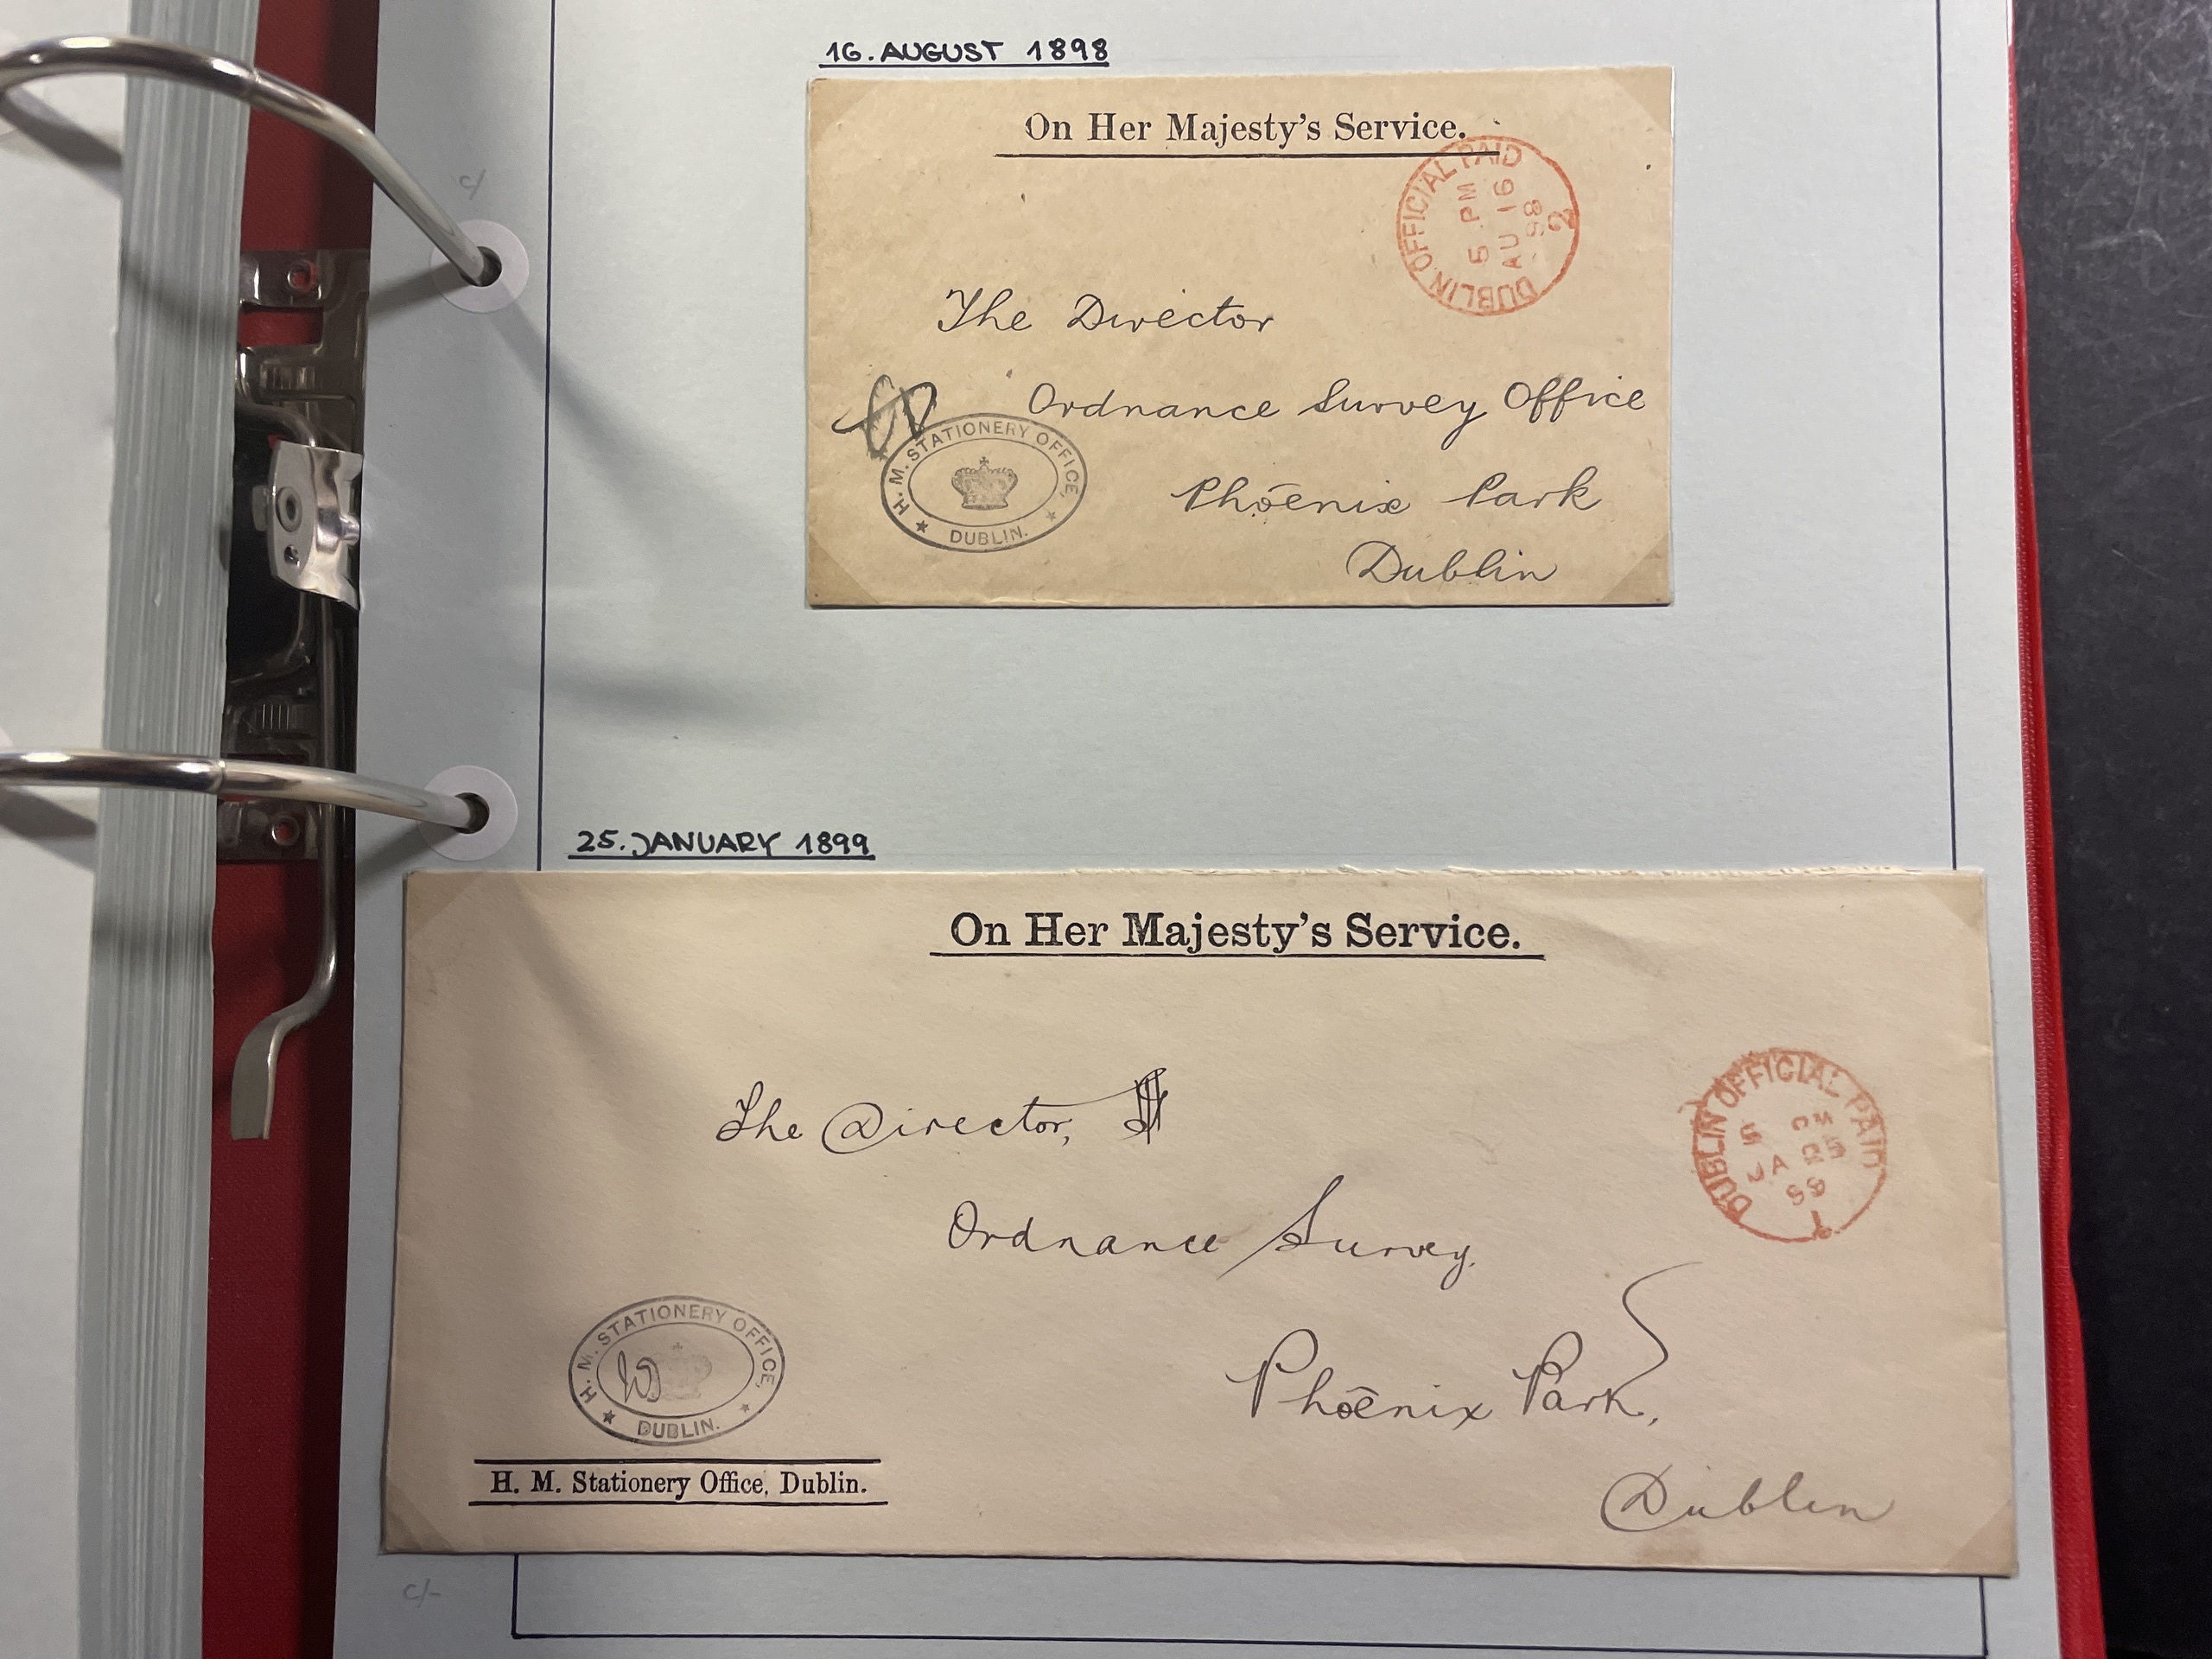 16. AUGUST 1898
On Her Majesty's Service.
DUBLIN OFFICIAL PAID
5 PM
AU 16
98
2
The Director
Ordnance Survey Office
Phoenix Park
Dublin
H. M. STATIONERY OFFICE,
DUBLIN.
c/
25. JANUARY 1899
On Her Majesty's Service.
DUBLIN OFFICIAL PAID
5 PM
JA 25
99
The Director,
Ordnance Survey,
Phoenix Park,
Dublin
H. M. STATIONERY OFFICE,
DUBLIN.
H. M. Stationery Office, Dublin.
c/-